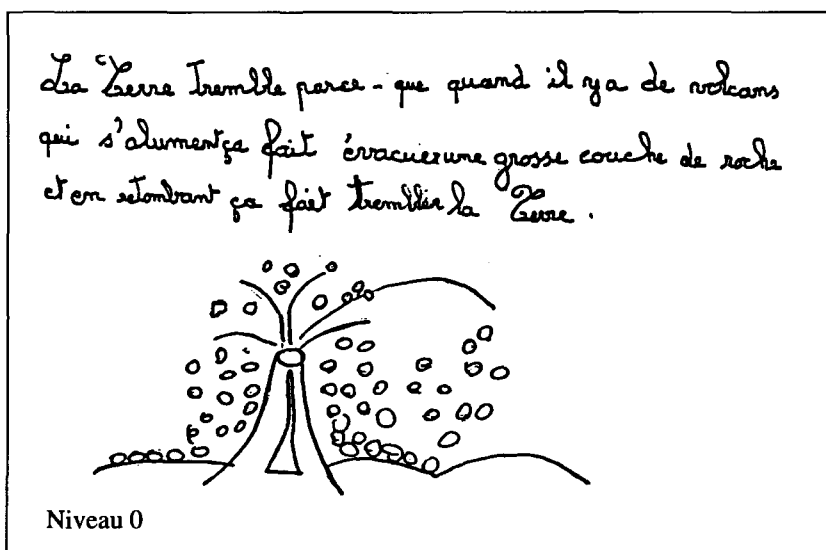 La Terre Tremble parce-que quand il ya de volcans
qui s'alument ça fait évacuer une grosse couche de roche
et en retombant ça fait trembler la Terre.
Niveau 0